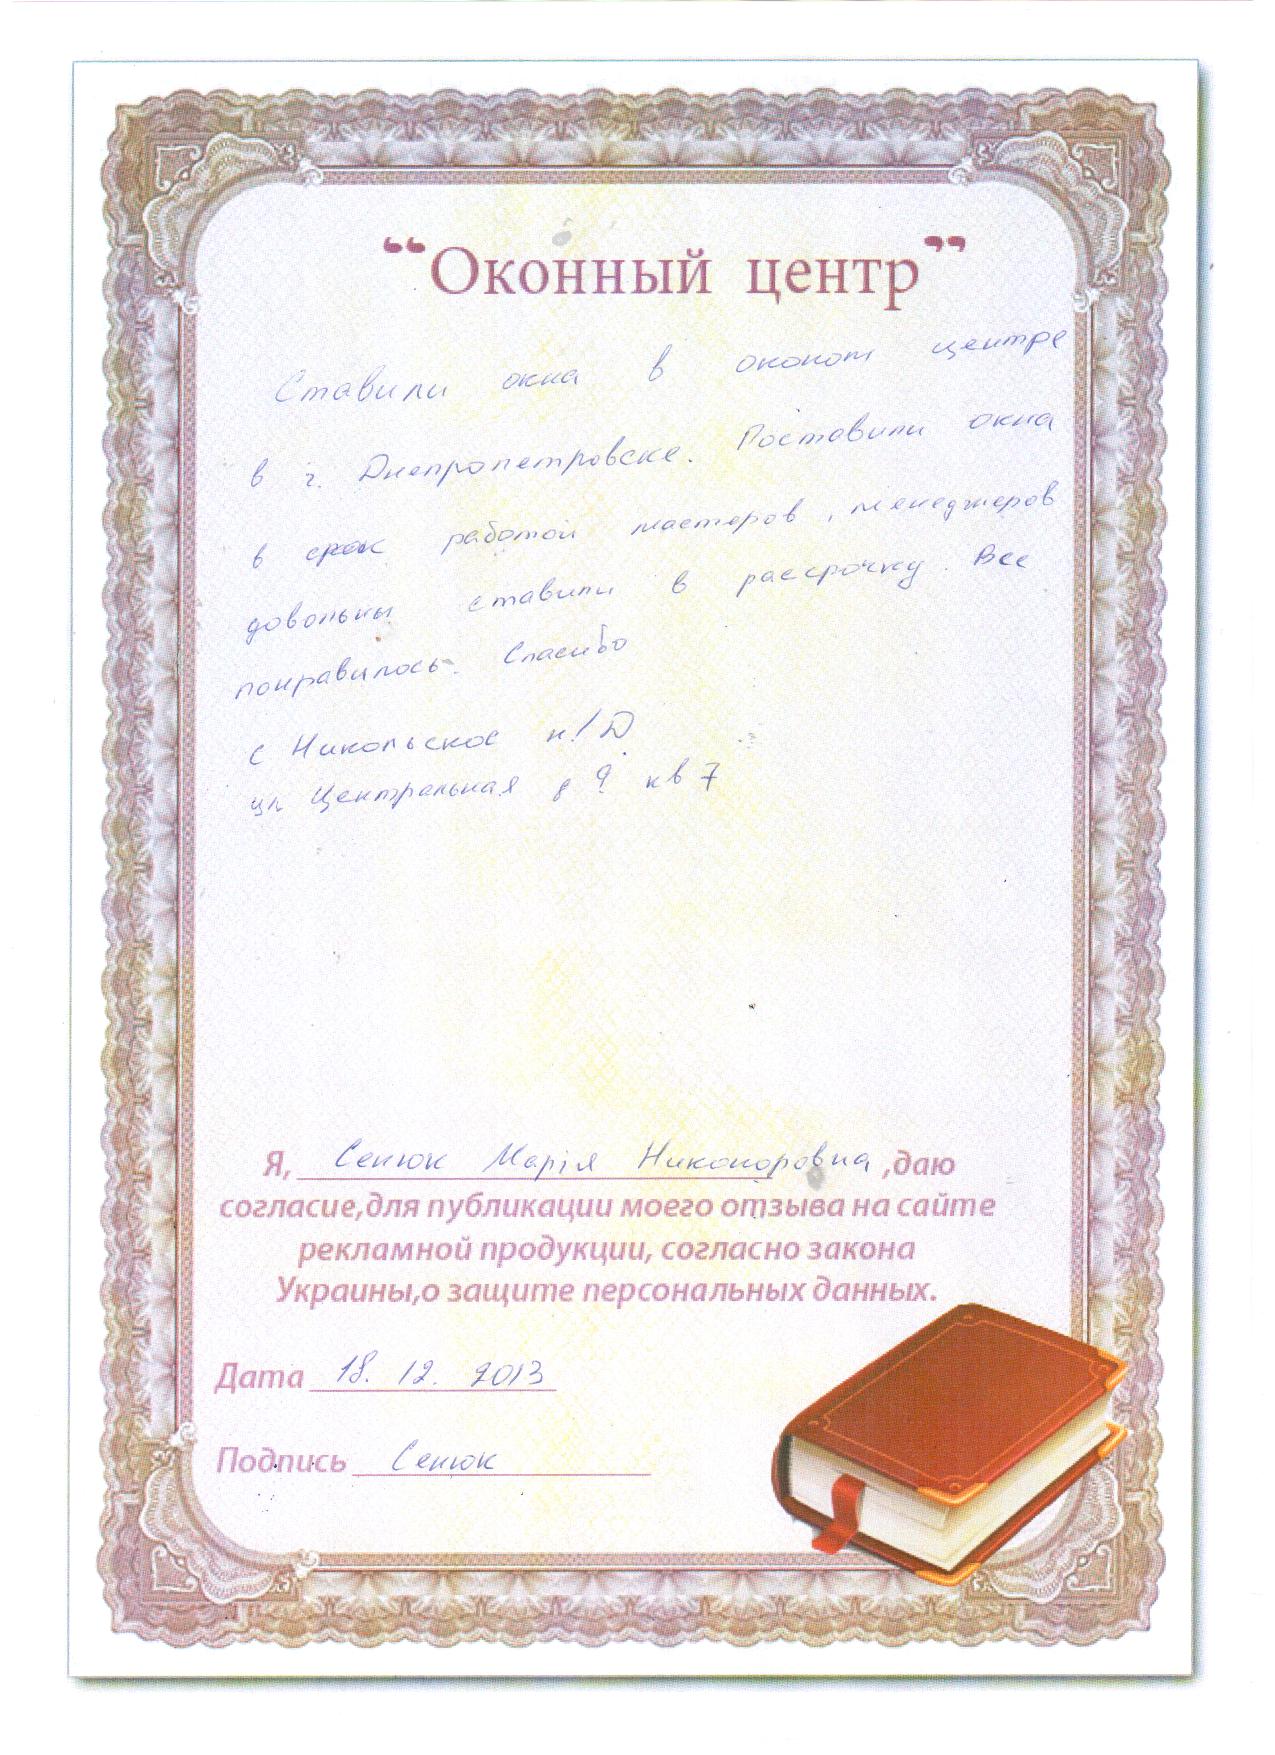 “Оконный центр”
Ставили окна в оконом центре
в г. Днепропетровске. Поставили окна
в срок работой мастеров, менеджеров
довольны ставили в рассрочку. Все
понравилось. Спасибо
с Никольское н/Д
ул Центральная д 9 кв 7
Я, Сенюк Марія Никоноровна ,даю
согласие,для публикации моего отзыва на сайте
рекламной продукции, согласно закона
Украины,о защите персональных данных.
Дата 18. 12. 2013
Подпись Сенюк